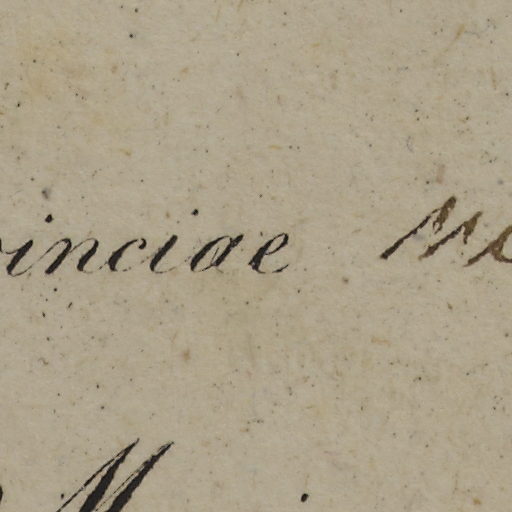 vinciae Me
M